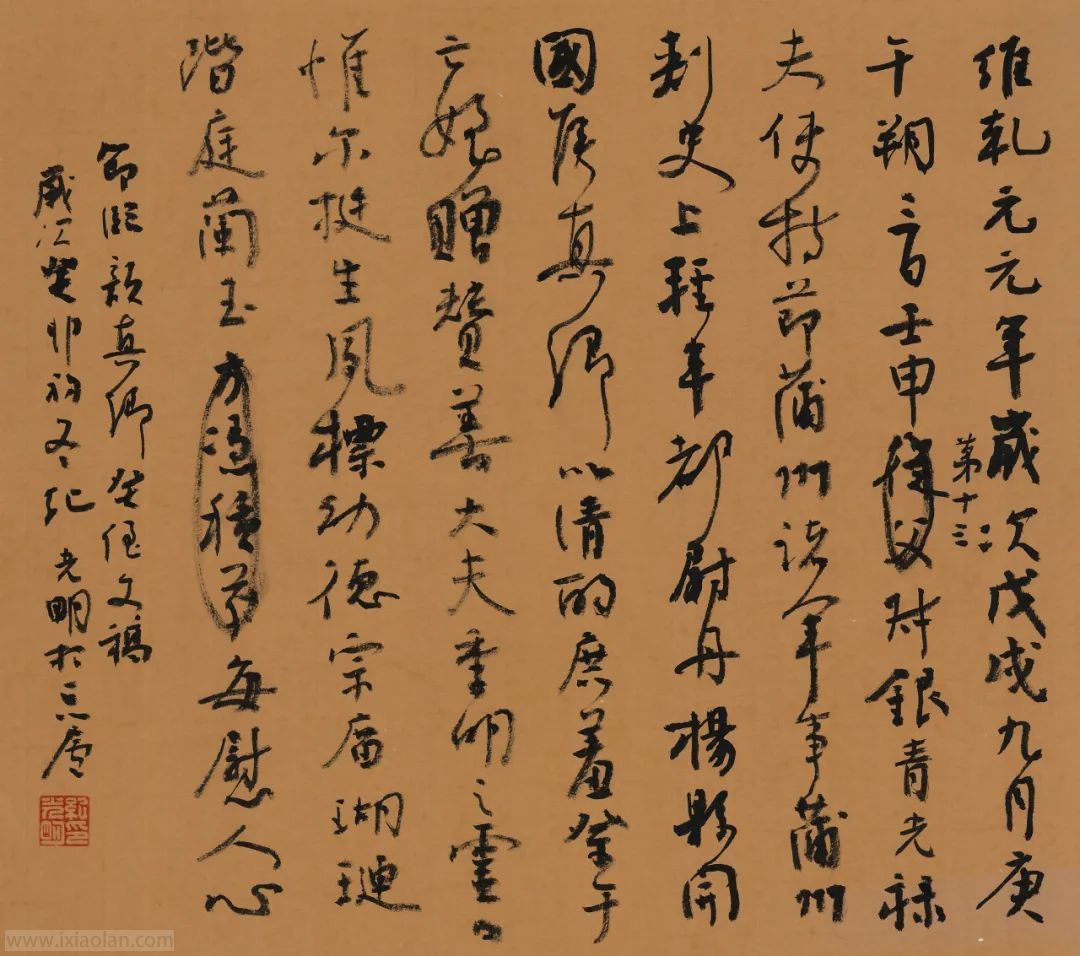 維乾元元年歲次戊戌九月庚
午朔三日壬申從父
第十三
叔銀青光祿
夫使持節蒲州諸軍事蒲州
刺史上輕車都尉丹楊縣開
國侯真卿以清酌庶羞祭于
亡姪贈贊善大夫季明之靈曰
惟尔挺生夙標幼德宗廟瑚璉
階庭蘭玉方憑積善每慰人心
節臨顏真卿祭侄文稿
歲次癸卯初冬紀光明於三廬
www.ixiaolan.com